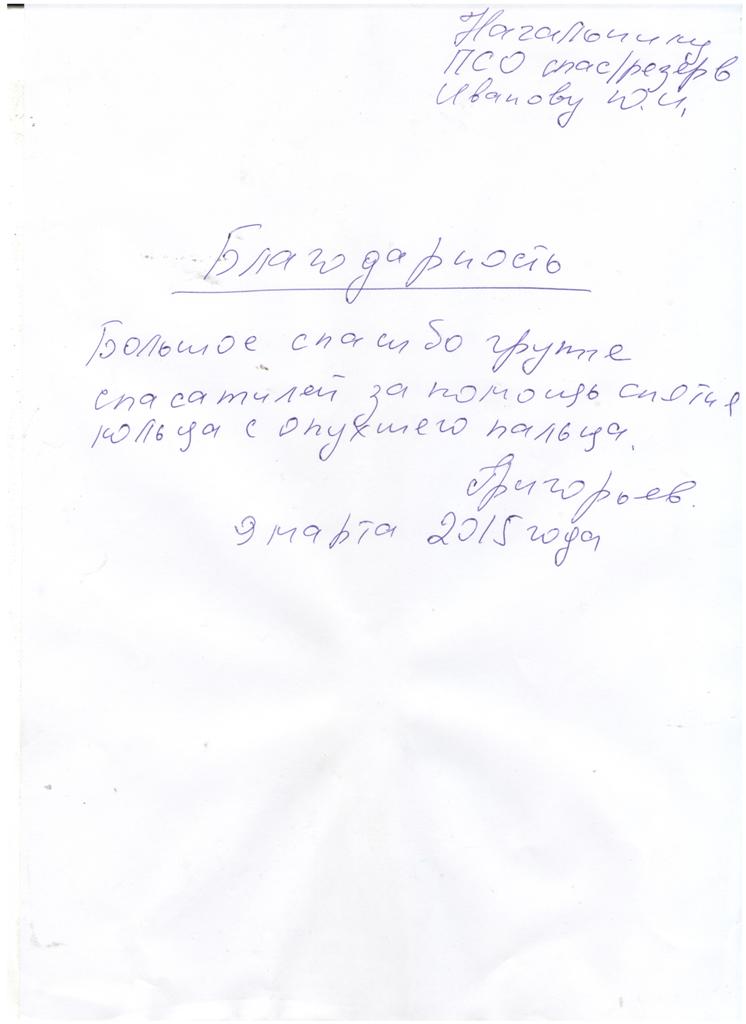 Начальнику
ПСО спас/резерв
Иванову Ю.И.
Благодарность
Большое спасибо группе
спасатилей за помощь снятия
кольца с опухшего пальца.
Григорьев.
9 марта 2015 года